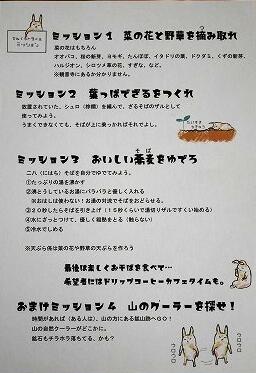 ミッション1 菜の花と野草を摘み取れ
菜の花はもちろん
オオバコ、桜の新芽、ヨモギ、たんぽぽ、イタドリの葉、ドクダミ、くずの新芽、
ハルジオン、シロツメ草の花、すぎな、など。
※観音寺にあるか分かりません。
ミッション2 葉っぱでざるをつくれ
放置されていた、シュロ（棕櫚）を編んで、ざるそばのザルとして
使ってみよう。
うまくできなくても、そばが上に乗っかればそれでよし。
ミッション3 おいしい蕎麦をゆでろ
そば
二八（にはち）そばを自分でゆでてみよう。
①たっぷりの湯を沸かす
②沸とうしているお湯にバラバラと優しく入れる
※おはしは使わない！お湯の対流でそばをおどらせる。
③20秒たらそばを引き上げ（15秒くらいで湯切りザルですくい始める）
④水にざっとつけて、優しく粗熱をとる（触らない）
⑤冷水でしめる
※天ぷら係は菜の花や野草の天ぷらを作ろう
最後は楽しくおそばを食べて…
希望者にはドリップコーヒーカフェタイムも。
おまけミッション4 山のクーラーを探せ！
時間があれば（ある人は）、山の方にある鉱山跡へGO！
山の自然クーラーがどこかに。
鉱石もチラホラ落ちてる、かも？
コロコロ
コロコロ